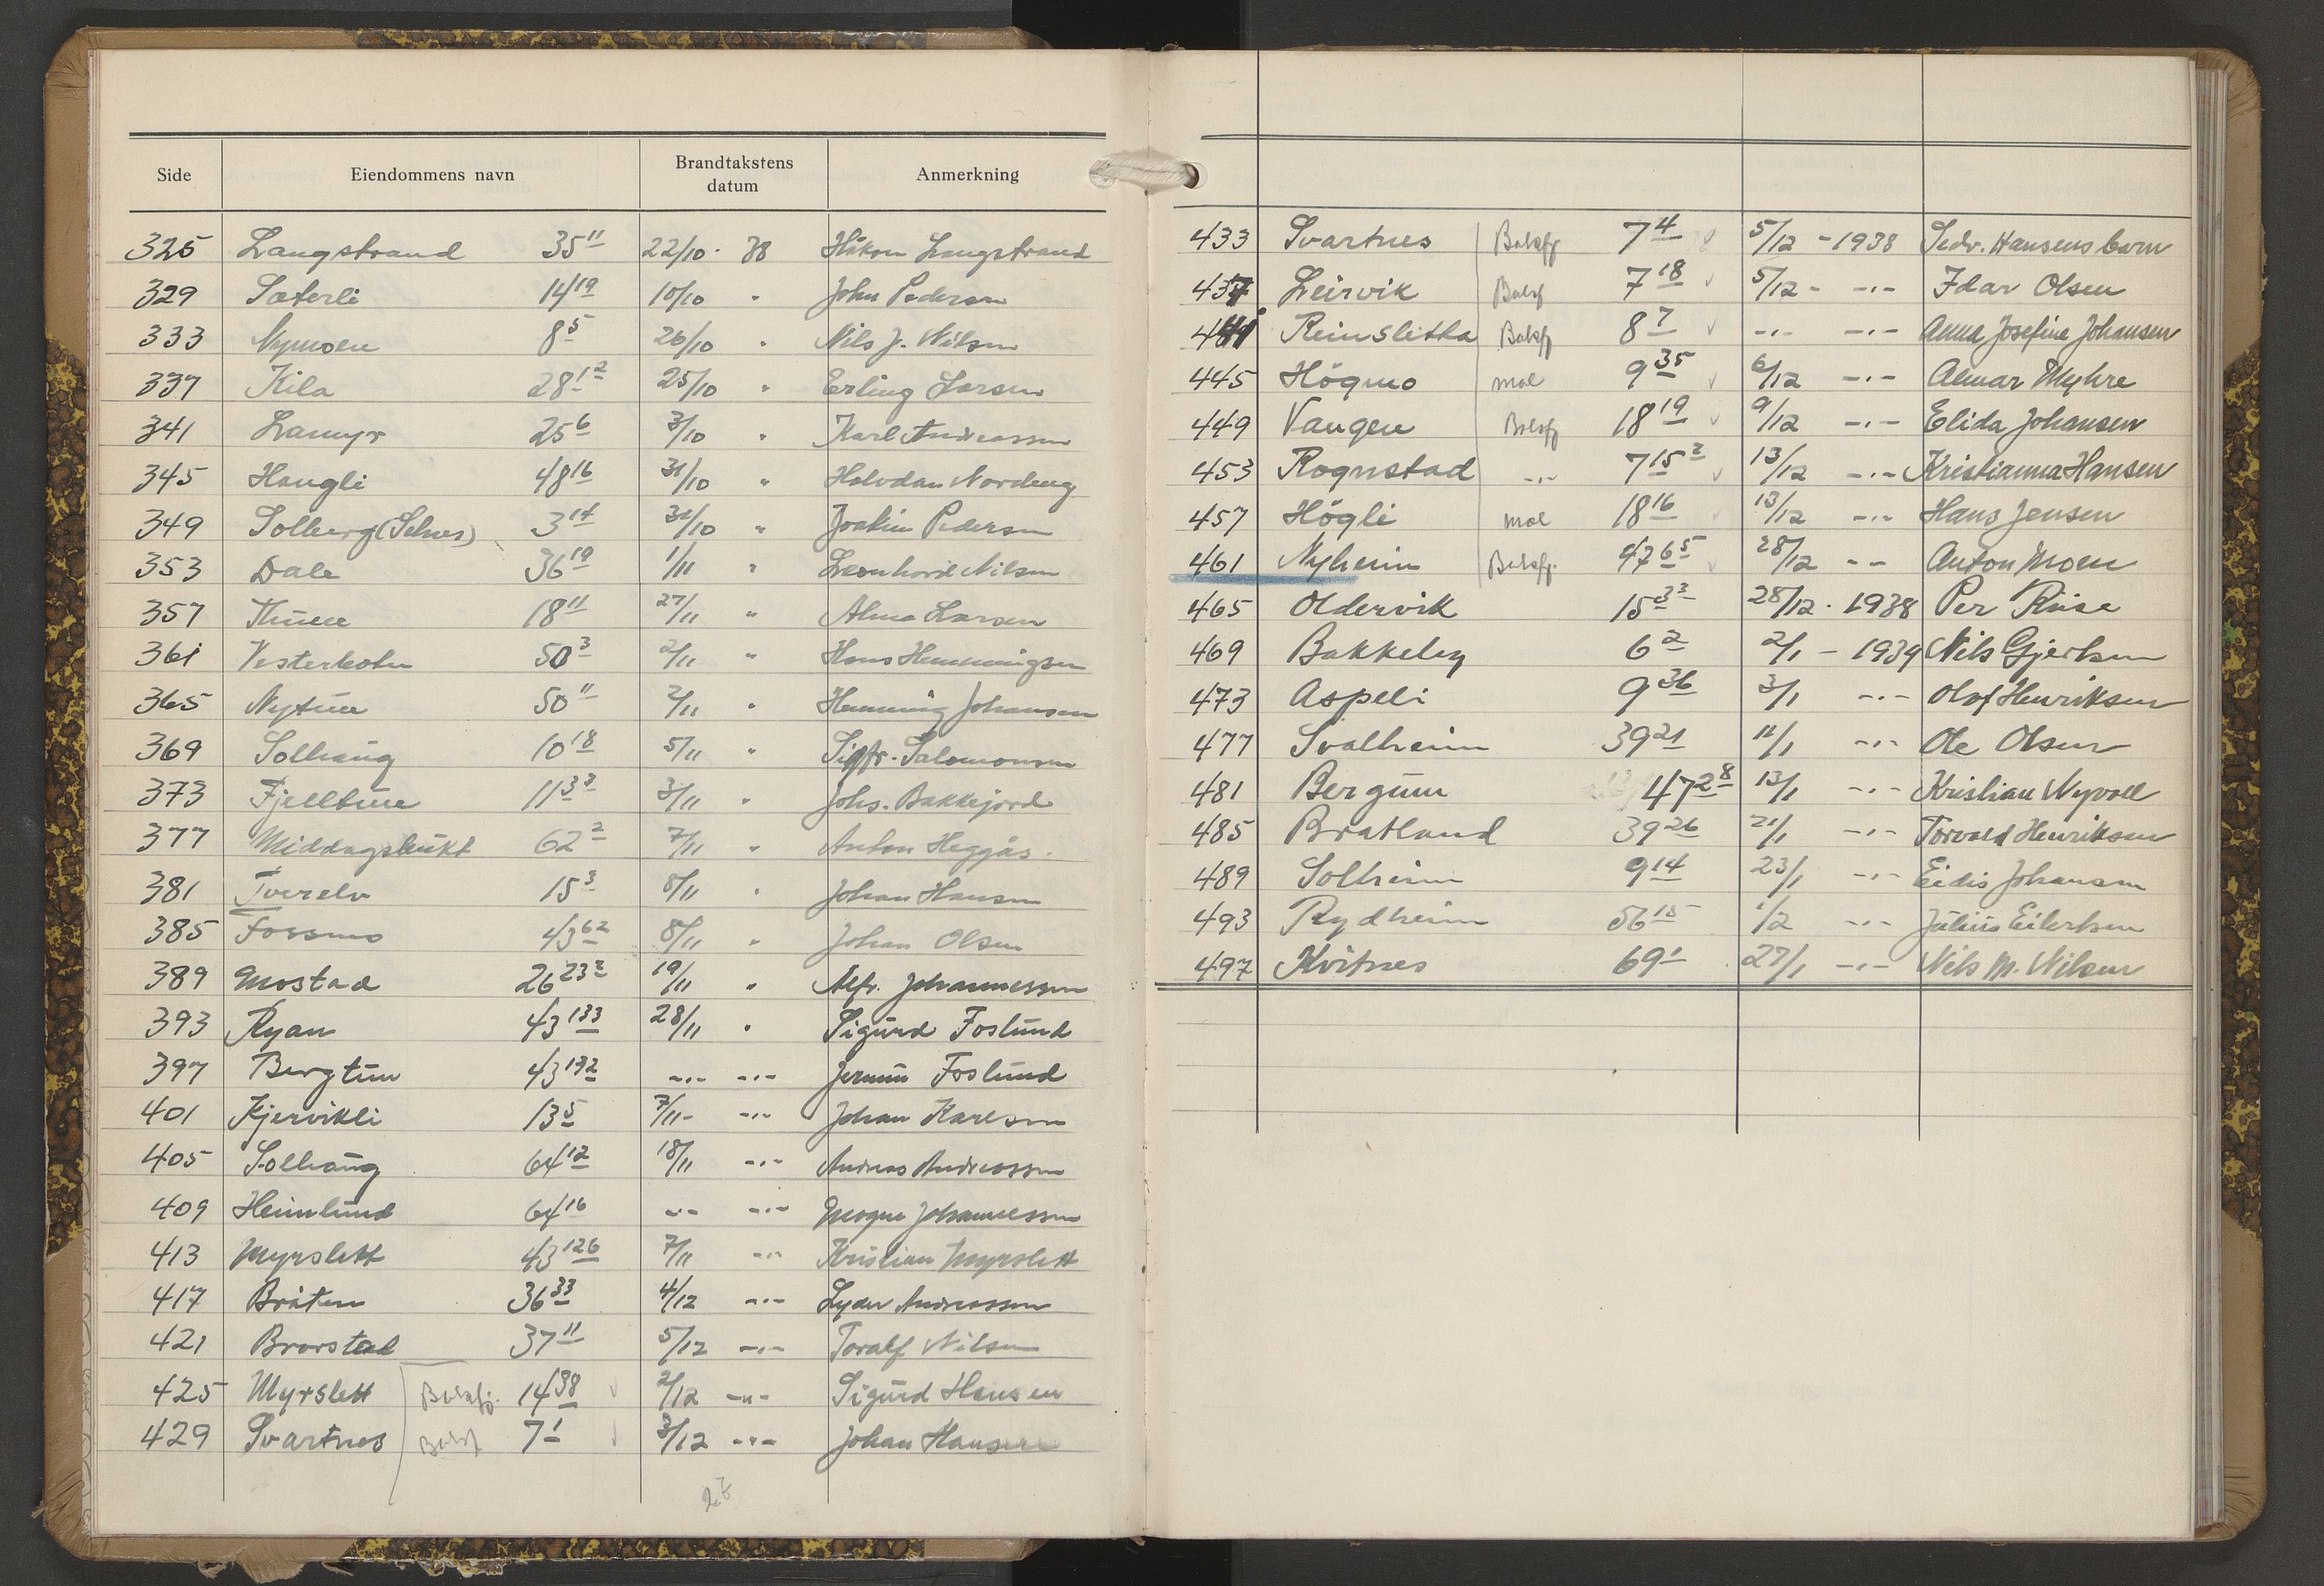 Side Eiendommens navn Brandtakstens datum Anmerkning
325 Langstrand 35 11 22/10 · 38 Håkon Langstrand
329 Sæterli 14 19 10/10 " John Pedersen
333 Nymoen 8 5 26/10 " Nils J. Nilsen
337 Kila 28 12 25/10 " Erling Larsen
341 Lamyr 25 6 3/10 " Karl Andreassen
345 Haugli 48 16 31/10 " Halvdan Nordeng
349 Solberg (Selnes) 3 14 31/10 " Joakim Pedersen
353 Dale 36 19 1/11 " Leonhard Nilsen
357 Thune 18 11 27/11 " Alma Larsen
361 Vesterholm 50 3 2/11 " Hans Henningsen
365 Nytun 50 11 2/11 " Henning Johansen
369 Solhaug 10 18 5/11 " Sigfr. Salomonsen
373 Fjelltun 11 33 3/11 " Johs. Bakkejord
377 Middagsbukt 62 2 7/11 " Anton Heggås.
381 Tverelv 15 3 8/11 " Johan Hansen
385 Fossmo 43 62 8/11 " Johan Olsen
389 Mostad 26 23 2 19/11 " Alfr. Johannessen
393 Ryan 43 133 28/11 " Sigurd Foslund
397 Bergtun 43 132 -"- -"- Foslund
401 Kjervikli 13 5 7/11- -"- Johan Karlsen
405 Solhaug 64 12 18/11 -"- Andreas Andreassen
409 Heimlund 64 16 -"- -"- Magne Johannessen
413 Myrslett 43 126 7/11 -"- Kristian Myrslett
417 Bråten 36 33 4/12 -"- Lyder Andreassen
421 Brorstad 37 11 5/12 -"- Toralf Nilsen
425 Myrslett Balsfj. 14 38 2/12 -"- Sigurd Hansen
429 Svartnes Balsf 7 1 3/12 -"- Johan Hansen
433 Svartnes Balsfj 7 4 5/12 - 1938 Sedv. Hansens barn
437 Leirvik Balsf 7 18 5/12 - -"- Idar Olsen
441 Reinslitka Balsfj 8 7 -"- -"- Anna Josefine Johansen
445 Högmo Mal 9 35 6/12 -"- Almar Myhre
449 Vangen Balsfj 18 19 9/12 -"- Elida Johansen
453 Rognstad -"- 7 15 2 13/12 -"- Kristianna Hansen
457 Högli Mal 18 16 13/12 -"- Hans Jensen
461 Nyheim Balsfj. 47 65 28/12 - - Anton Moen
465 Oldervik 15 33 28/12 · 1938 Per Riise
469 Bakkeby 6 2 2/1 - 1939 Nils Gjertsen
473 Aspeli 9 36 3/1 -"- Olaf Henriksen
477 Svalheim 39 21 11/1 -"- Ole Olsen
481 Bergum 47 28 13/1 -"- Kristian Nyvoll
485 Bratland 39 26 21/1 -"- Torvald Henriksen
489 Solheim 9 14 23/1 -"- Eidis Johansen
493 Rydheim 56 15 1/2 -"- Julius Eilertsen
497 Kvitnes 69 1 27/1 -"- Nils M. Nilsen